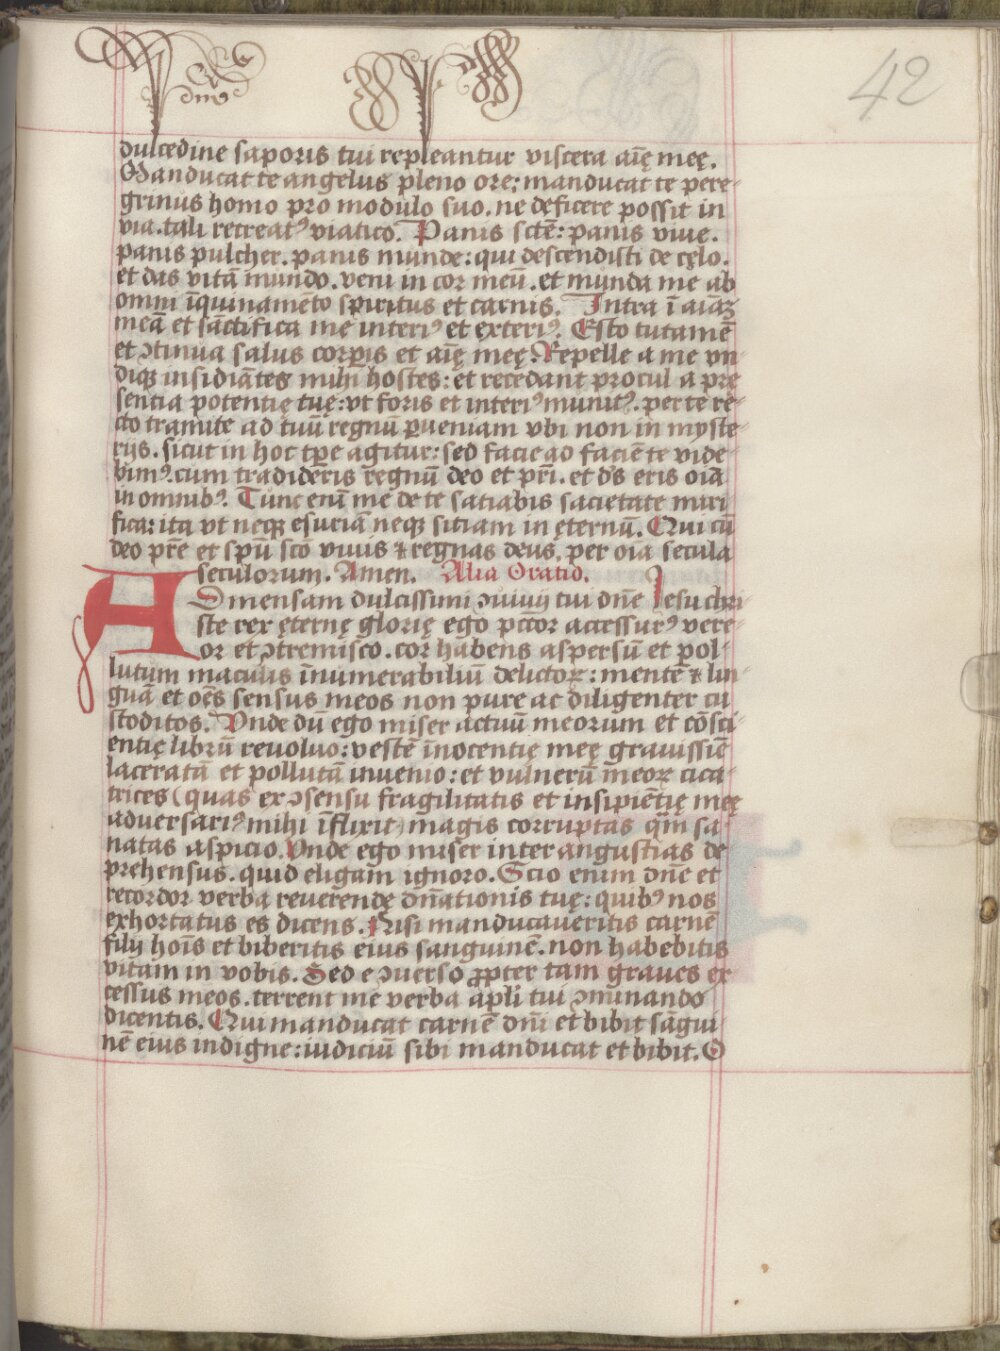 42
dulcedine saporis tui repleantur viscera aīę meę.
Manducat te angelus pleno ore: manducat te pere-
grinus homo pro modulo suo. ne deficere possit in
via. tali recreatꝰ viatico. Panis sctē: panis vive.
panis pulcher. panis munde: qui descendisti de cęlo.
et das vitā mundo. veni in cor meū. et munda me ab
omni īquinamēto spiritus et carnis. Intra ī aīaꝫ
meā et sāctifica me interiꝰ et exteriꝰ. Esto tutamē
et ꝯtinua salus corꝑis et aīę meę. Repelle a me vn-
diqꝫ insidiātes mihi hostes: et recedant procul a prę
sentia potentię tuę: vt foris et interiꝰ munitꝰ. per te re-
cto tramite ad tuū regnū ꝑueniam vbi non in myste-
rijs. sicut in hoc tꝑe agitur: sed facie ad faciē te vide-
bimꝰ. cum tradideris regnū deo et pr̄i. et d̄s eris oīa
in omnibꝰ. Tunc enī me de te satiabis sacietate miri
fica: ita vt neqꝫ esuriā neqꝫ sitiam in ęternū. Qui cū
deo pr̄e et spū sc̄o viuis & regnas deus. per oīa secula
seculorum. Amen. Alia Oratio.
AD mensam dulcissimi ꝯuiuij tui dn̄e Iesu chri-
ste rex ęternę glorię ego pct̄or accessurꝰ vere-
or et ꝯtremisco. cor habens aspersū et pol-
lutum maculis īnumerabiliū delictoꝝ: mentē & lin-
guā et oēs sensus meos non pure ac diligenter cu
stoditos. Vnde dū ego miser actuū meorum et cōsci-
entię librū reuoluo: vestē īnocentię meę grauissīe
laceratā et pollutā inuenio: et vulnerū meoꝝ cica-
trices (quas ex ꝯsensu fragilitatis et insipiētię meę
adversariꝰ mihi īflixit) magis corruptas q̄m sa-
natas aspicio. Vnde ego miser inter angustias de
prehensus. quid eligam ignoro. Scio enim dn̄e et
recordor verba reuerende dn̄ationis tuę: quibꝰ nos
exhortatus es dicens. Nisi manducaveritis carnē
filij hoīs et biberitis eius sanguinē. non habebitis
vitam in vobis. Sed e ꝯuerso ꝓpter tam graues ex
cessus meos. terrent me verba apl̄i tui ꝯminando
dicentis. Qui manducat carnē dn̄i et bibit sāgui
nē eius indigne: iudiciū sibi manducat et bibit. O